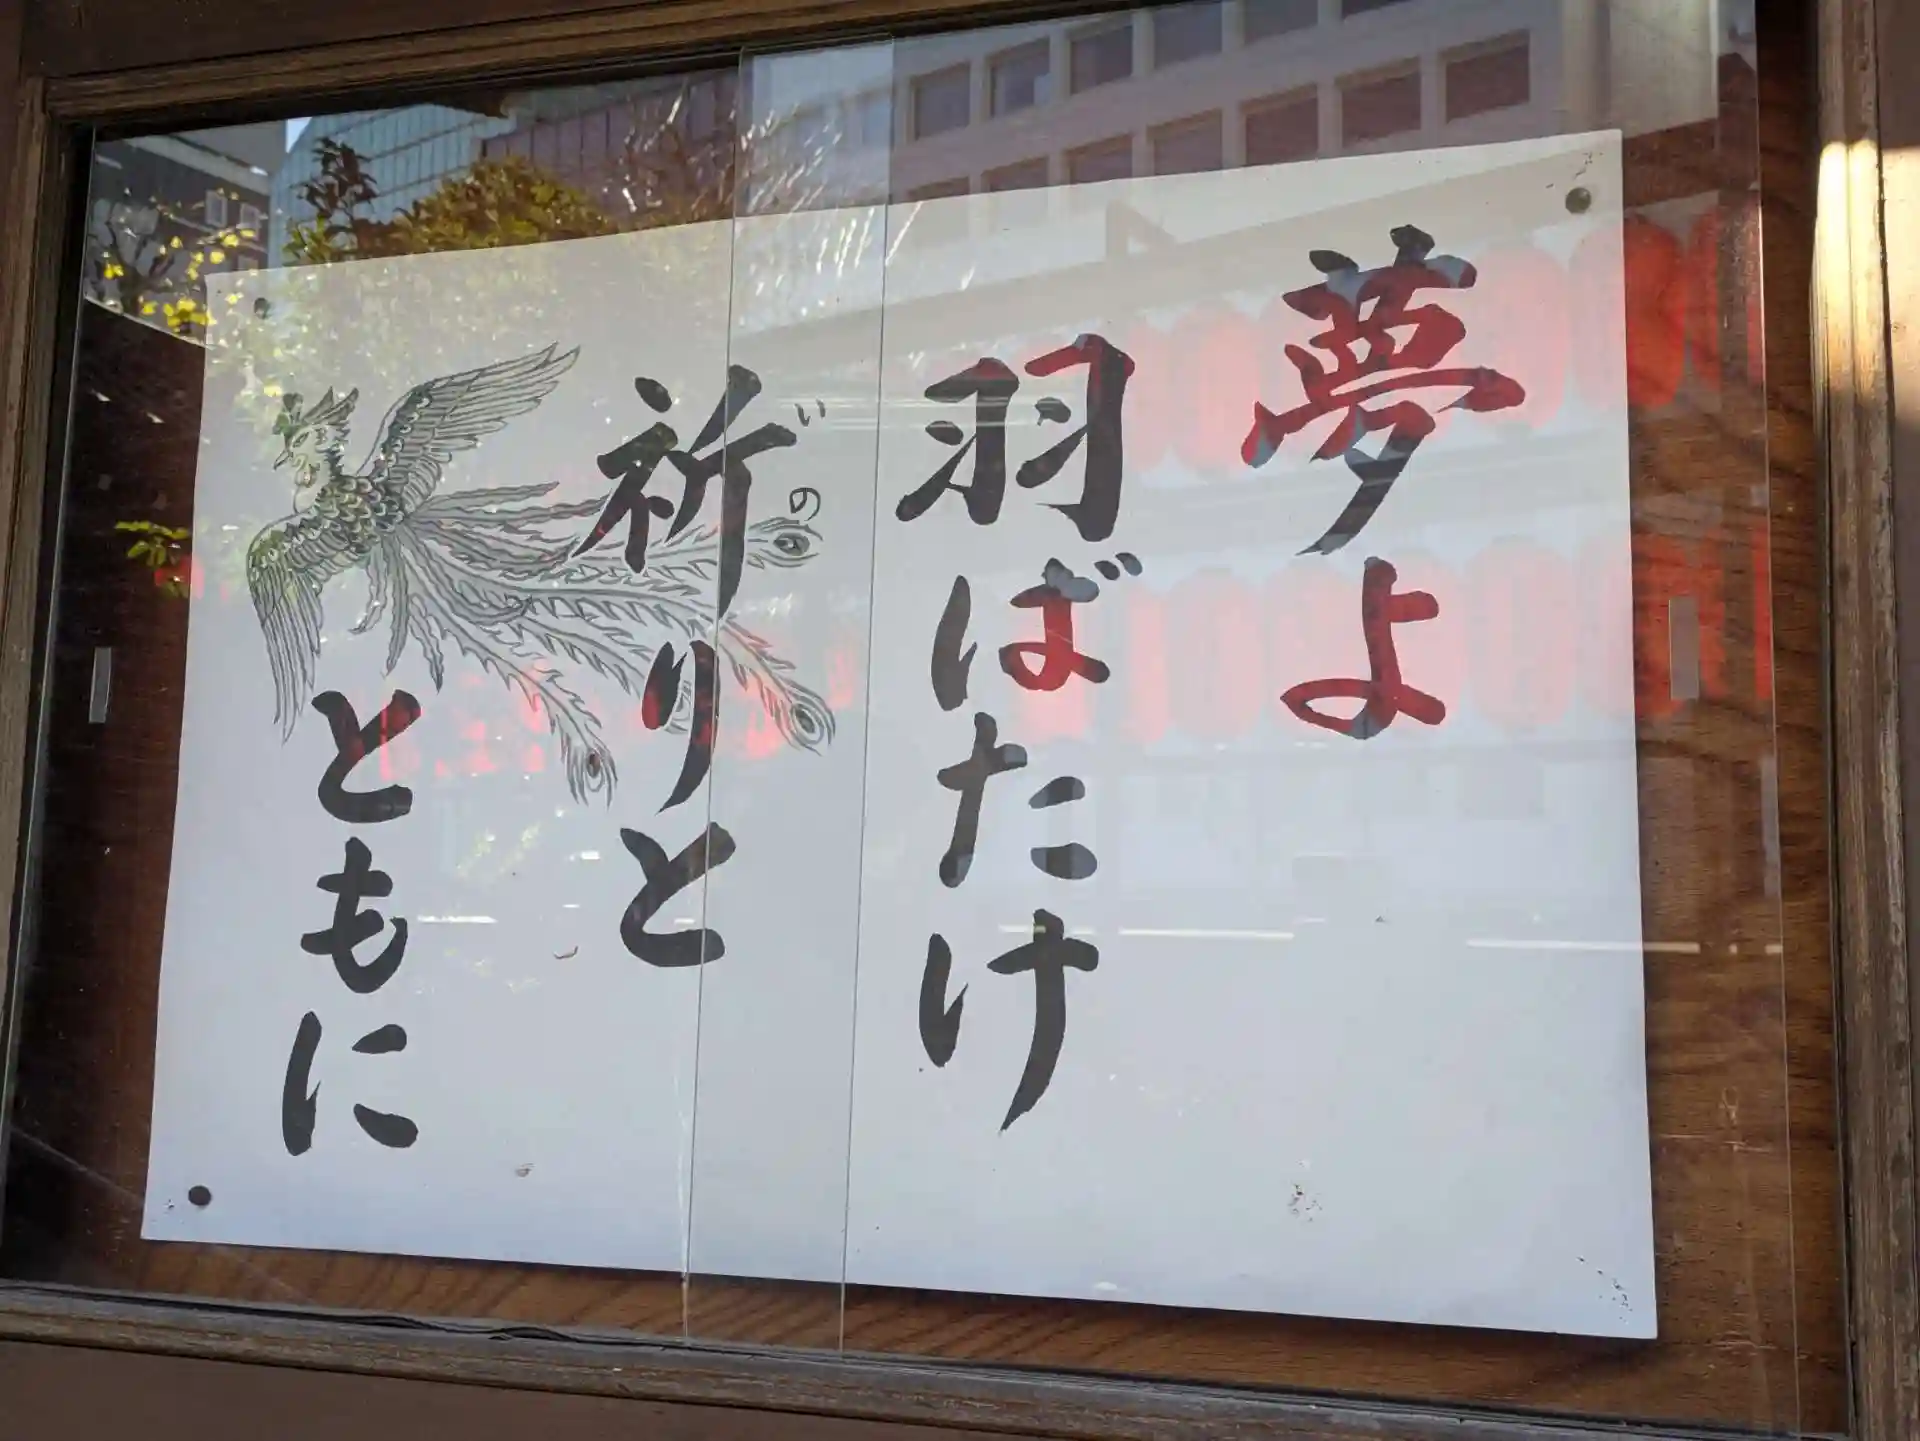 夢よ
羽ばたけ
祈りと
いの
ともに